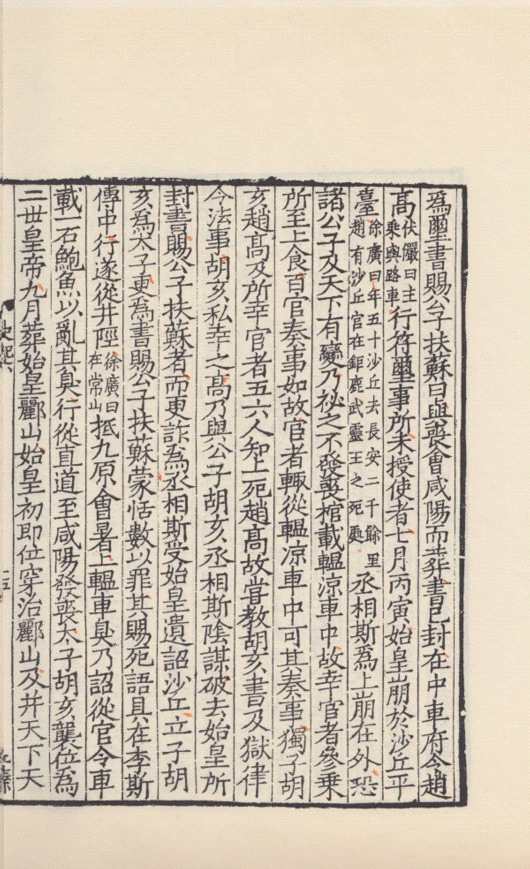 為璽書賜公子扶蘇曰與喪會咸陽而葬書已封在中車府令趙
高伏儼曰主乘輿路車行符璽事所未授使者七月丙寅始皇崩於沙丘平
臺徐廣曰年五十沙丘去長安二千餘里趙有沙丘宮在鉅鹿武靈王之死處丞相斯為上崩在外恐
諸公子及天下有變乃祕之不發喪棺載轀凉車中故幸官者參乘
所至上食百官奏事如故官者輙從轀凉車中可其奏事獨子胡
亥趙高及所幸官者五六人知上死趙高故嘗教胡亥書及獄律
令法事胡亥私幸之高乃與公子胡亥丞相斯陰謀破去始皇所
封書賜公子扶蘇者而更詐為丞相斯受始皇遺詔沙丘立子胡
亥為太子更為書賜公子扶蘇蒙恬數以罪其賜死語具在李斯
傳中行遂從井陘徐廣曰在常山抵九原會暑上轀車臭乃詔從官令車
載一石鮑魚以亂其臭行從直道至咸陽發喪太子胡亥襲位為
二世皇帝九月葬始皇酈山始皇初即位穿治酈山及并天下天